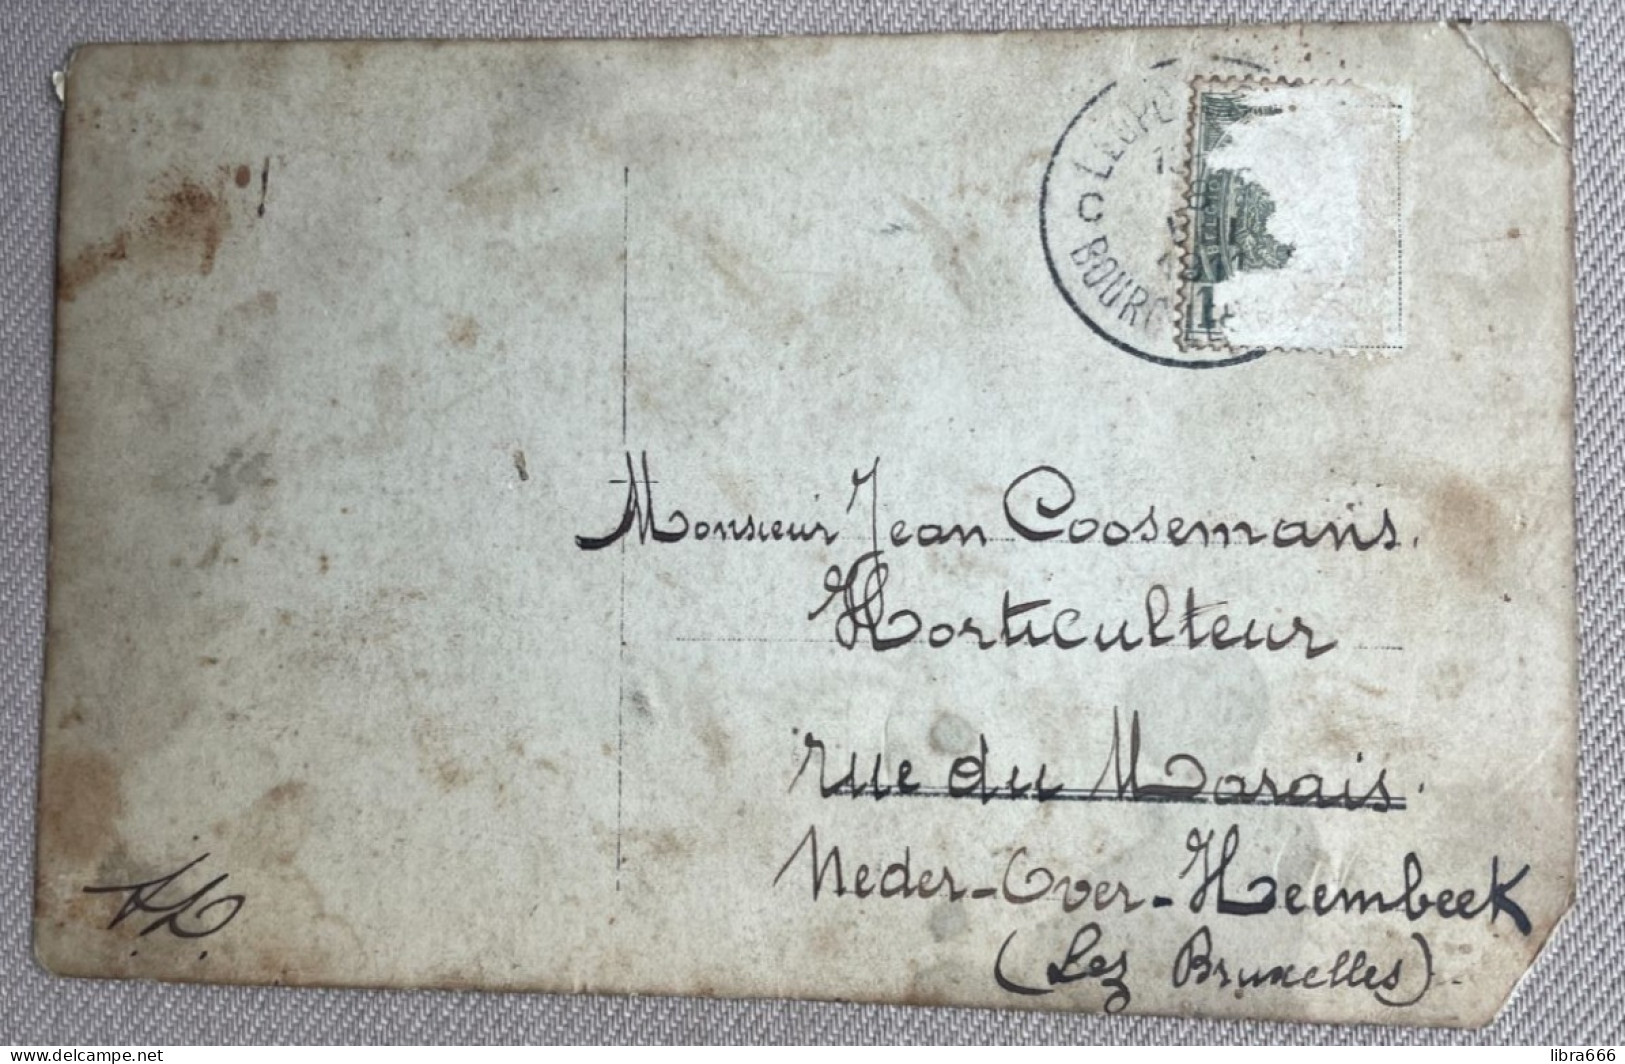 LEOPO
BOURG
1
Monsieur Jean Coosemans.
Horticulteur
rue du Marais.
Neder-Over-Heembeek
(Lez Bruxelles)
delcampe.net
libra666